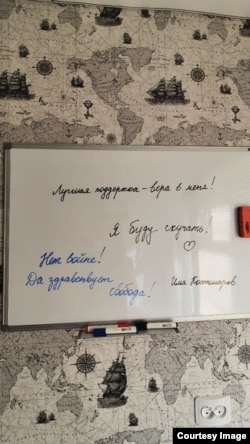 Лучшая поддержка – вера в меня!
Я буду скучать!
Нет войне!
Да здравствует
свобода!
Илья Костомаров
Courtesy Image